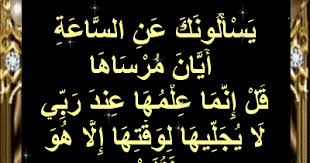 يَسْأَلُونَكَ عَنِ السَّاعَةِ
أَيَّانَ مُرْسَاهَا
قُلْ إِنَّمَا عِلْمُهَا عِندَ رَبِّي
لَا يُجَلِّيهَا لِوَقْتِهَا إِلَّا هُوَ